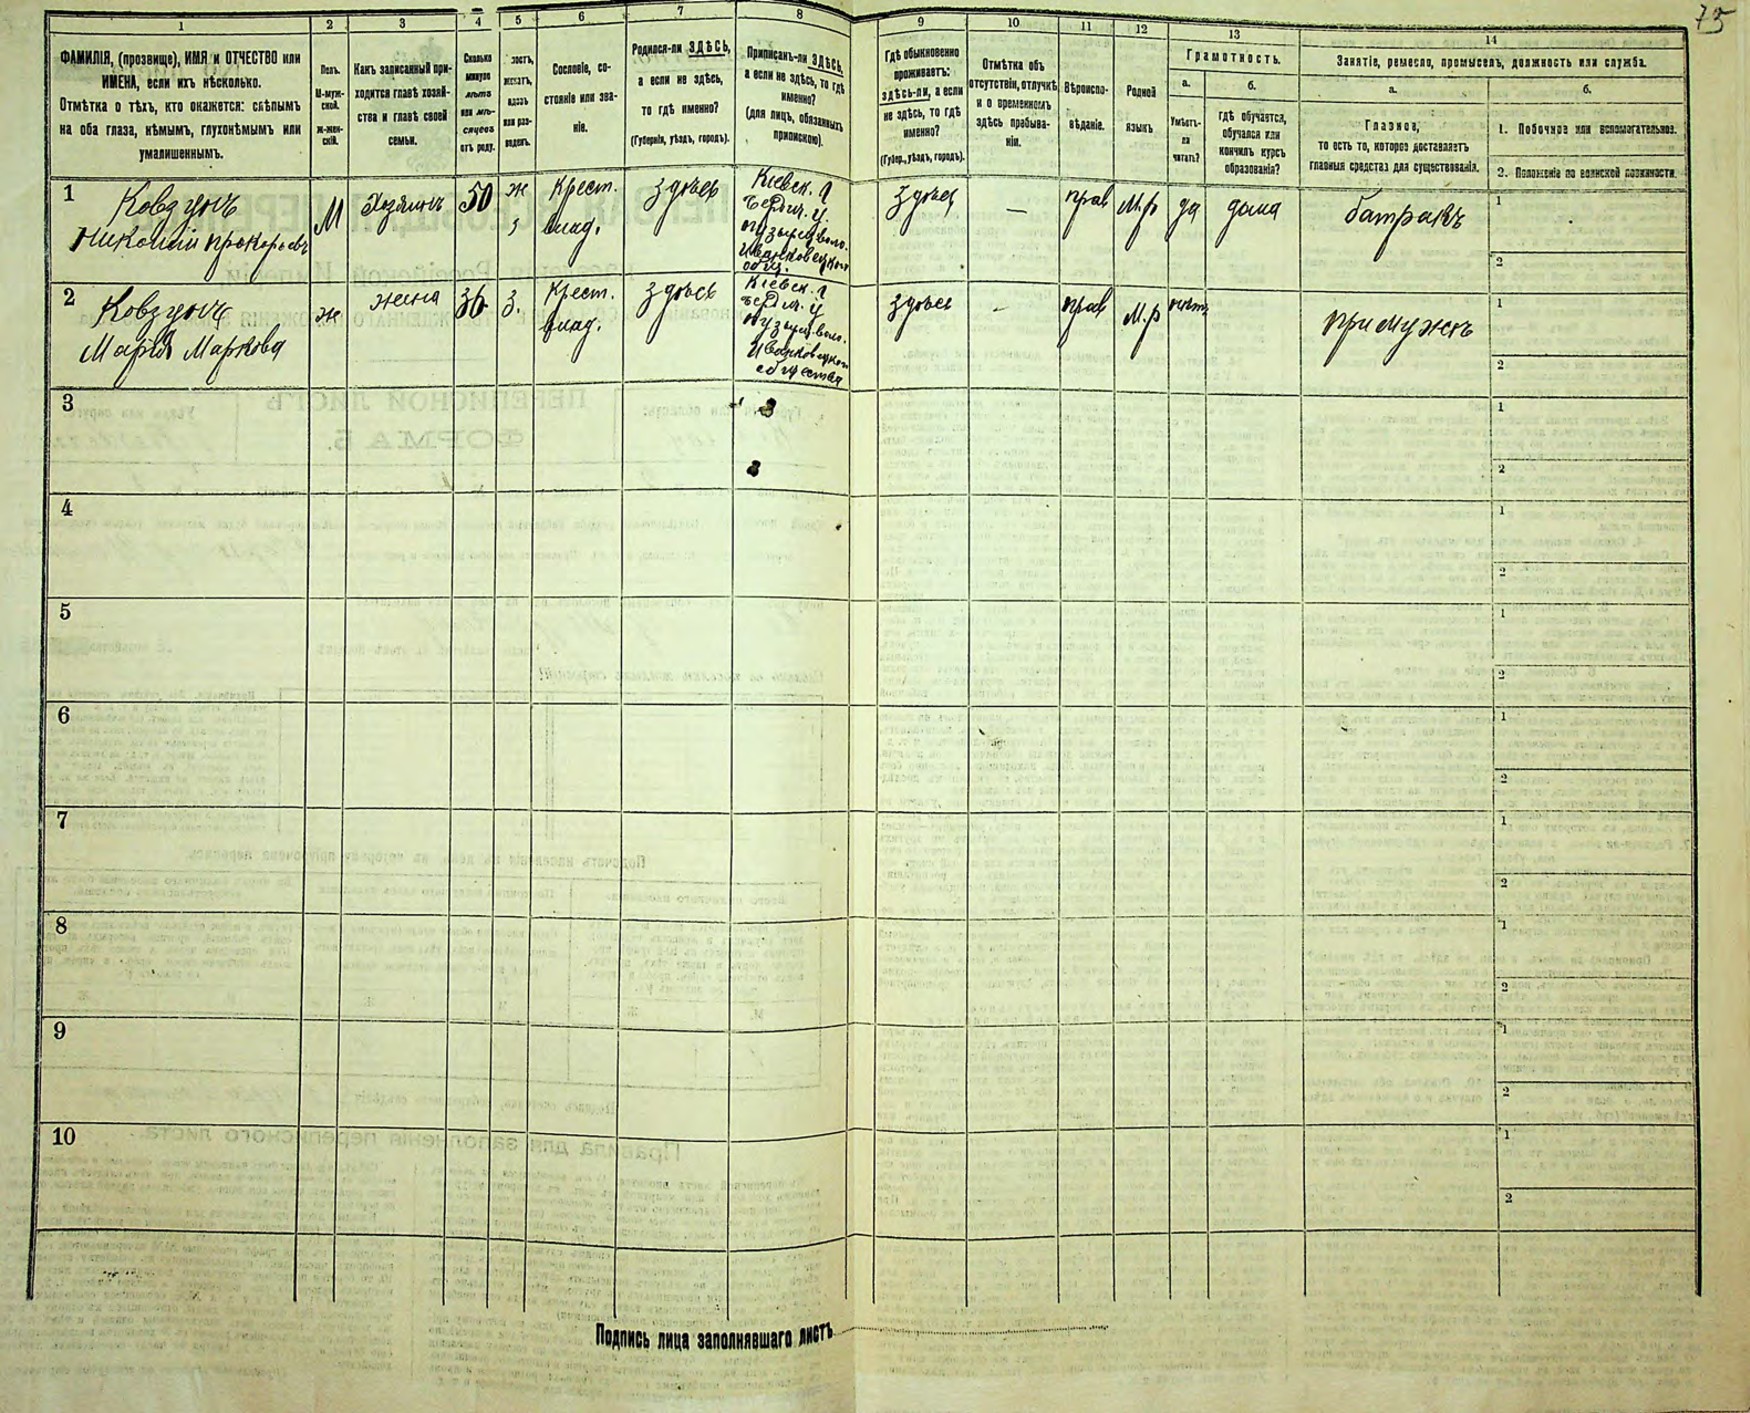 75
1
2
3
4
5
6
7
8
9
10
11
12
13
14
ФАМИЛІЯ, (прозвище), ИМЯ и ОТЧЕСТВО или
ИМЕНА, если ихъ нѣсколько.
Отмѣтка о тѣхъ, кто окажется: слѣпымъ
на оба глаза, нѣмымъ, глухонѣмымъ или
умалишеннымъ.
Полъ.
М-муж-
ской.
Ж-жен-
скій.
Какъ записанный при-
ходится главѣ хозяй-
ства и главѣ своей
семьи.
Сколько
минуло
лѣтъ
или мѣ-
сяцевъ
отъ роду.
вдовъ
или раз-
веденъ.
Сословіе, со-
стояніе или зва-
ніе.
Родился-ли ЗДѢСЬ,
а если не здѣсь,
то гдѣ именно?
(Губернія, уѣздъ, городъ).
Приписанъ-ли ЗДѢСЬ,
а если не здѣсь, то гдѣ
именно?
(для лицъ, обязанныхъ
припискою).
Гдѣ обыкновенно
проживаетъ:
здѣсь-ли, а если
не здѣсь, то гдѣ
именно?
(Губер., уѣздъ, городъ).
Отмѣтка объ
отсутствіи, отлучкѣ
и о временномъ
здѣсь пребыва-
ніи.
Вѣроиспо-
вѣданіе.
Родной
языкъ
Грамотность.
а.
Умѣетъ-
ли
читать?
б.
гдѣ обучается,
обучался или
кончилъ курсъ
образованія?
Занятіе, ремесло, промыселъ, должность или служба.
а.
Главное,
то есть то, которое доставляетъ
главныя средства для существованія.
б.
1. Побочное или вспомогательное.
2. Положеніе по воинской повинности.
1
Ковзунъ
Николай Прокофьевъ
М
Хозяинъ
50
ж
Крест.
влад.
здѣсь
Кіевск. г
Бердич. у.
общ.
здѣсь
—
прав
М.р
да
дома
батракъ
1
2
2
Марія Маркова
ж
жена
36
з.
Крест.
влад.
здѣсь
Кіевск. г
Бердич. у
общества
здѣсь
-
прав
М.р
нѣтъ
при мужѣ
1
2
3
1
2
4
1
2
5
1
2
6
1
2
7
1
2
8
1
2
9
1
2
10
1
2
Подпись лица заполнявшаго листъ